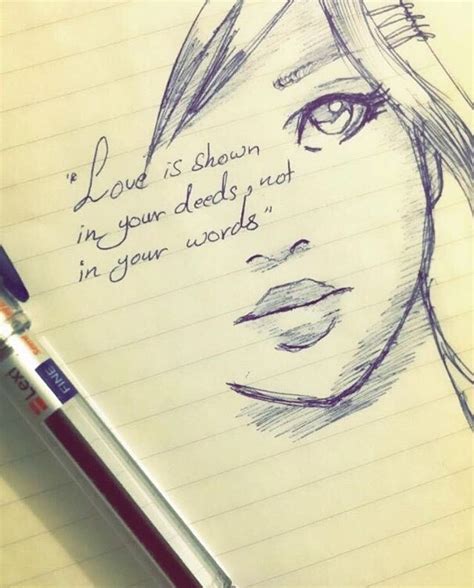 "Love is shown
in your deeds, not
in your words"
Lexi
FINE